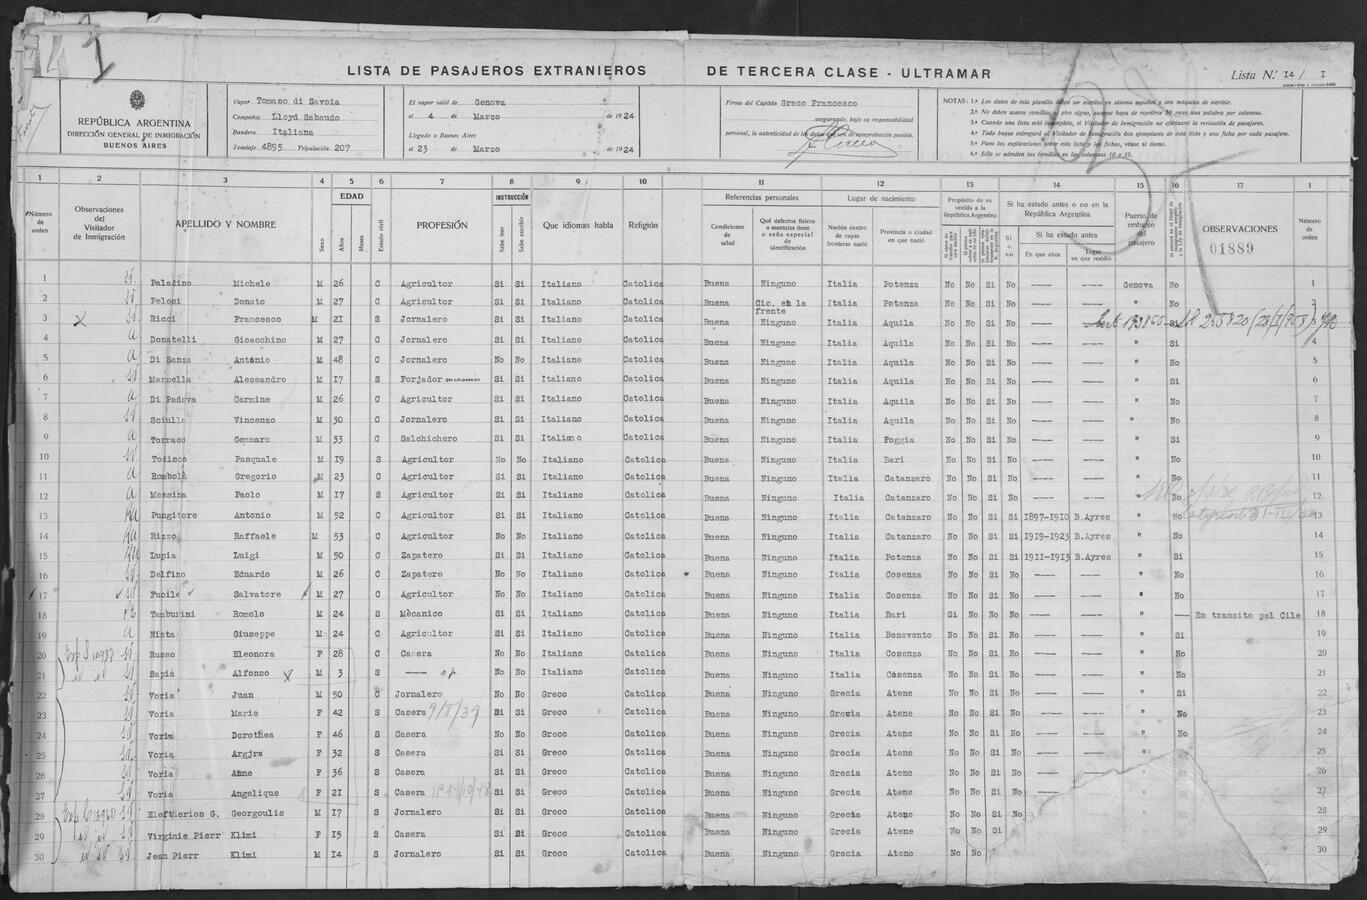 1
LISTA DE PASAJEROS EXTRANIEROS DE TERCERA CLASE - ULTRAMAR
Lista N.º 14/ I
REPÚBLICA ARGENTINA
DIRECCIÓN GENERAL DE INMIGRACIÓN
BUENOS AIRES
Vapor Tomaso di Savoia
Compañía Lloyd Sabaudo
Bandera Italiana
Tonelaje 4895 Tripulación 207
El vapor salió de Genova
el 4 de Marzo de 1924
Llegado a Buenos Aires
el 23 de Marzo de 1924
Firma del Capitán Greco Francesco
asegurando, bajo su responsabilidad
personal, la autenticidad de los datos que son de comprobación posible.
NOTAS: 1.ª Los datos de esta planilla deben ser escritos en idioma español y con máquina de escribir.
2.ª No deben usarse comillas u otro signo, aunque haya de repetirse 30 veces una palabra por columna.
3.ª Cuando una lista esté incompleta, el Visitador de Inmigración no efectuará la revisación de pasajeros.
4.ª Todo buque entregará al Visitador de Inmigración dos ejemplares de esta lista y una ficha por cada pasajero.
5.ª Para las explicaciones sobre esta lista y las fichas, véase al dorso.
6.ª Sólo se admiten las comillas en las columnas 10 y 15.
1 2 3 4 5 6 7 8 9 10 11 12 13 14 15 16 17 1
Número de orden
Observaciones del Visitador de Inmigración
APELLIDO Y NOMBRE
Sexo
EDAD
Años
Meses
Estado civil
PROFESIÓN
INSTRUCCIÓN
Sabe leer
Sabe escribir
Que idiomas habla
Religión
Referencias personales
Condiciones de salud
Qué defectos físicos o mentales tiene o seña especial de identificación
Lugar de nacimiento
Nación dentro de cuyas fronteras nació
Provincia o ciudad en que nació
Propósito de su venida a la República Argentina
Si ha estado antes o no en la República Argentina
Si o no
Si ha estado antes
En que años
Lugar en que residió
Puerto de embarco del pasajero
OBSERVACIONES
01889
Número de orden
1 Paladino Michele M 26 C Agricultor Si Si Italiano Catolica Buena Ninguno Italia Potenza No No Si No — — Genova No 1
2 Pelosi Donato M 27 C Agricultor Si Si Italiano Catolica Buena Cic. en la frente Italia Potenza No No Si No — — " No 2
3 Ricci Francesco M 21 S Jornalero Si Si Italiano Catolica Buena Ninguno Italia Aquila No No Si No — Si
4 Donatelli Gioacchino M 27 C Jornalero Si Si Italiano Catolica Buena Ninguno Italia Aquila No No Si No — — " No 4
5 Di Sanza Antonio M 48 C Jornalero No No Italiano Catolica Buena Ninguno Italia Aquila No No Si No — — " No 5
6 Mannella Alessandro M 17 S Forjador mecanico Si Si Italiano Catolica Buena Ninguno Italia Aquila No No Si No — — " Si 6
7 Di Padova Carmine M 26 C Agricultor Si Si Italiano Catolica Buena Ninguno Italia Aquila No No Si No — — " No 7
8 Sciullo Vincenzo M 30 C Jornalero Si Si Italiano Catolica Buena Ninguno Italia Aquila No No Si No — — " No 8
9 Torraco Gennaro M 33 C Salchichero Si Si Italiano Catolica Buena Ninguno Italia Foggia No No Si No — — " Si 9
10 Todisco Pasquale M 19 S Agricultor No No Italiano Catolica Buena Ninguno Italia Bari No No Si No — — " No 10
11 Rombola Gregorio M 23 C Agricultor Si Si Italiano Catolica Buena Ninguno Italia Catanzaro No No Si No — — " No 11
12 Messina Paolo M 17 S Agricultor Si Si Italiano Catolica Buena Ninguno Italia Catanzaro No No Si No — — " No 12
13 Pungitore Antonio M 52 C Agricultor Si Si Italiano Catolica Buena Ninguno Italia Catanzaro No No Si Si 1897-1910 B.Ayres " No 13
14 Rizzo Raffaele M 53 C Agricultor No No Italiano Catolica Buena Ninguno Italia Catanzaro No No Si Si 1919-1923 B.Ayres " No 14
15 Lupia Luigi M 50 C Zapatero Si Si Italiano Catolica Buena Ninguno Italia Potenza No No Si Si 1911-1913 B.Ayres " Si 15
16 Delfino Eduardo M 26 C Zapatero No No Italiano Catolica Buena Ninguno Italia Cosenza No No Si No — — " No 16
17 Fucile Salvatore M 27 C Agricultor No No Italiano Catolica Buena Ninguno Italia Cosenza No No Si No — — " No 17
18 Tamburini Romolo M 24 S Mècanico Si Si Italiano Catolica Buena Ninguno Italia Bari Si No No No — — " — En transito pel Cile 18
19 Nista Giuseppe M 24 C Agricultor Si Si Italiano Catolica Buena Ninguno Italia Benevento No No Si No — — " Si 19
20 Russo Eleonora F 28 C Casera No No Italiano Catolica Buena Ninguno Italia Cosenza No No Si No — — " No 20
21 Sapia Alfonso M 3 S — No No Italiano Catolica Buena Ninguno Italia Cosenza No No Si No — — " No 21
22 Voria Juan M 50 C Jornalero No No Greco Catolica Buena Ninguno Grecia Atene No No Si No — — " Si 22
23 Voria Marie F 42 S Casera 9/5/39 Si Si Greco Catolica Buena Ninguno Grecia Atene No No Si No — — " No 23
24 Voria Dorothea F 46 S Casera No No Greco Catolica Buena Ninguno Grecia Atene No No Si No — — " No 24
25 Voria Argjra F 32 S Casera Si Si Greco Catolica Buena Ninguno Grecia Atene No No Si No — — " Si 25
26 Voria Anne F 36 S Casera Si Si Greco Catolica Buena Ninguno Grecia Atene No No Si No — 26
27 Voria Angelique F 21 S Casera Si Si Greco Catolica Buena Ninguno Grecia Atene No No Si No — 27
28 Eleftherios G. Georgoulis M 17 S Jornalero Si Si Greco Catolica Buena Ninguno Grecia Atene No No Si No 28
29 Virginie Pierr Klimi F 15 S Casera Si Si Greco Catolica Buena Ninguno Grecia Atene No No Si 29
30 Jean Pierr Klimi M 14 S Jornalero Si Si Greco Catolica Buena Ninguno Grecia Atene No No 30